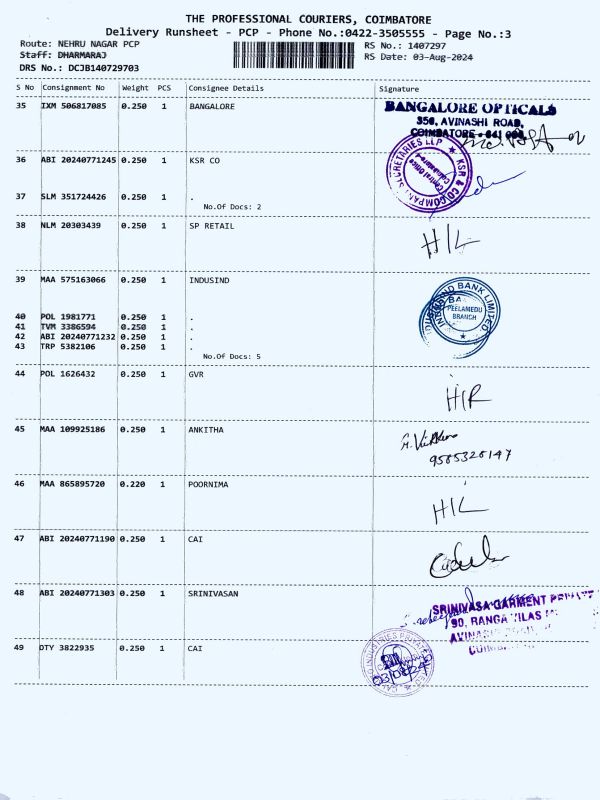 THE PROFESSIONAL COURIERS, COIMBATORE
Delivery Runsheet - PCP - Phone No.:0422-3505555 - Page No.:3
Route: NEHRU NAGAR PCP
RS No.: 1407297
Staff: DHARMARAJ
RS Date: 03-Aug-2024
DRS No.: DCJB140729703
S No Consignment No Weight PCS Consignee Details Signature
35 IXM 506817085 0.250 1 BANGALORE
BANGALORE OPTICALS
356, AVINASHI ROAD,
COIMBATORE
36 ABI 20240771245 0.250 1 KSR CO
KSR & CO COMPANY SECRETARIES LLP
37 SLM 351724426 0.250 1 .
No.Of Docs: 2
38 NLM 20303439 0.250 1 SP RETAIL
H/L
39 MAA 575163066 0.250 1 INDUSIND
INDUSIND BANK LIMITED
PEELAMEDU
BRANCH
40 POL 1981771 0.250 1 .
41 TVM 3386594 0.250 1 .
42 ABI 20240771232 0.250 1 .
43 TRP 5382106 0.250 1 .
No.Of Docs: 5
44 POL 1626432 0.250 1 GVR
H/R
45 MAA 109925186 0.250 1 ANKITHA
9585328147
46 MAA 865895720 0.220 1 POORNIMA
H/L
47 ABI 20240771190 0.250 1 CAI
48 ABI 20240771303 0.250 1 SRINIVASAN
SRINIVASA GARMENT
90, RANGA VILAS
49 DTY 3822935 0.250 1 CAI